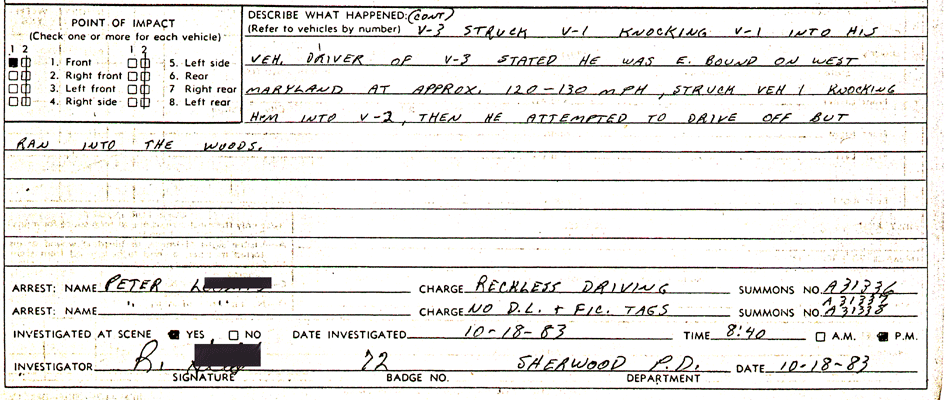 POINT OF IMPACT
(Check one or more for each vehicle)
1 2 1 2
1. Front 5. Left side
2. Right front 6. Rear
3. Left front 7 Right rear
4. Right side 8. Left rear
DESCRIBE WHAT HAPPENED: (CONT)
(Refer to vehicles by number) V-3 STRUCK V-1 KNOCKING V-1 INTO HIS
VEH. DRIVER OF V-3 STATED HE WAS E. BOUND ON WEST
MARYLAND AT APPROX. 120-130 MPH, STRUCK VEH 1 KNOCKING
HIM INTO V-2, THEN HE ATTEMPTED TO DRIVE OFF BUT
RAN INTO THE WOODS.
ARREST: NAME PETER CHARGE RECKLESS DRIVING SUMMONS NO. A31336
ARREST: NAME " " " CHARGE NO D.L. + FIC. TAGS SUMMONS NO. A31338
INVESTIGATED AT SCENE YES NO DATE INVESTIGATED 10-18-83 TIME 8:40 A.M. P.M.
INVESTIGATOR R. 72 SHERWOOD P.D. DATE 10-18-83
SIGNATURE BADGE NO. DEPARTMENT